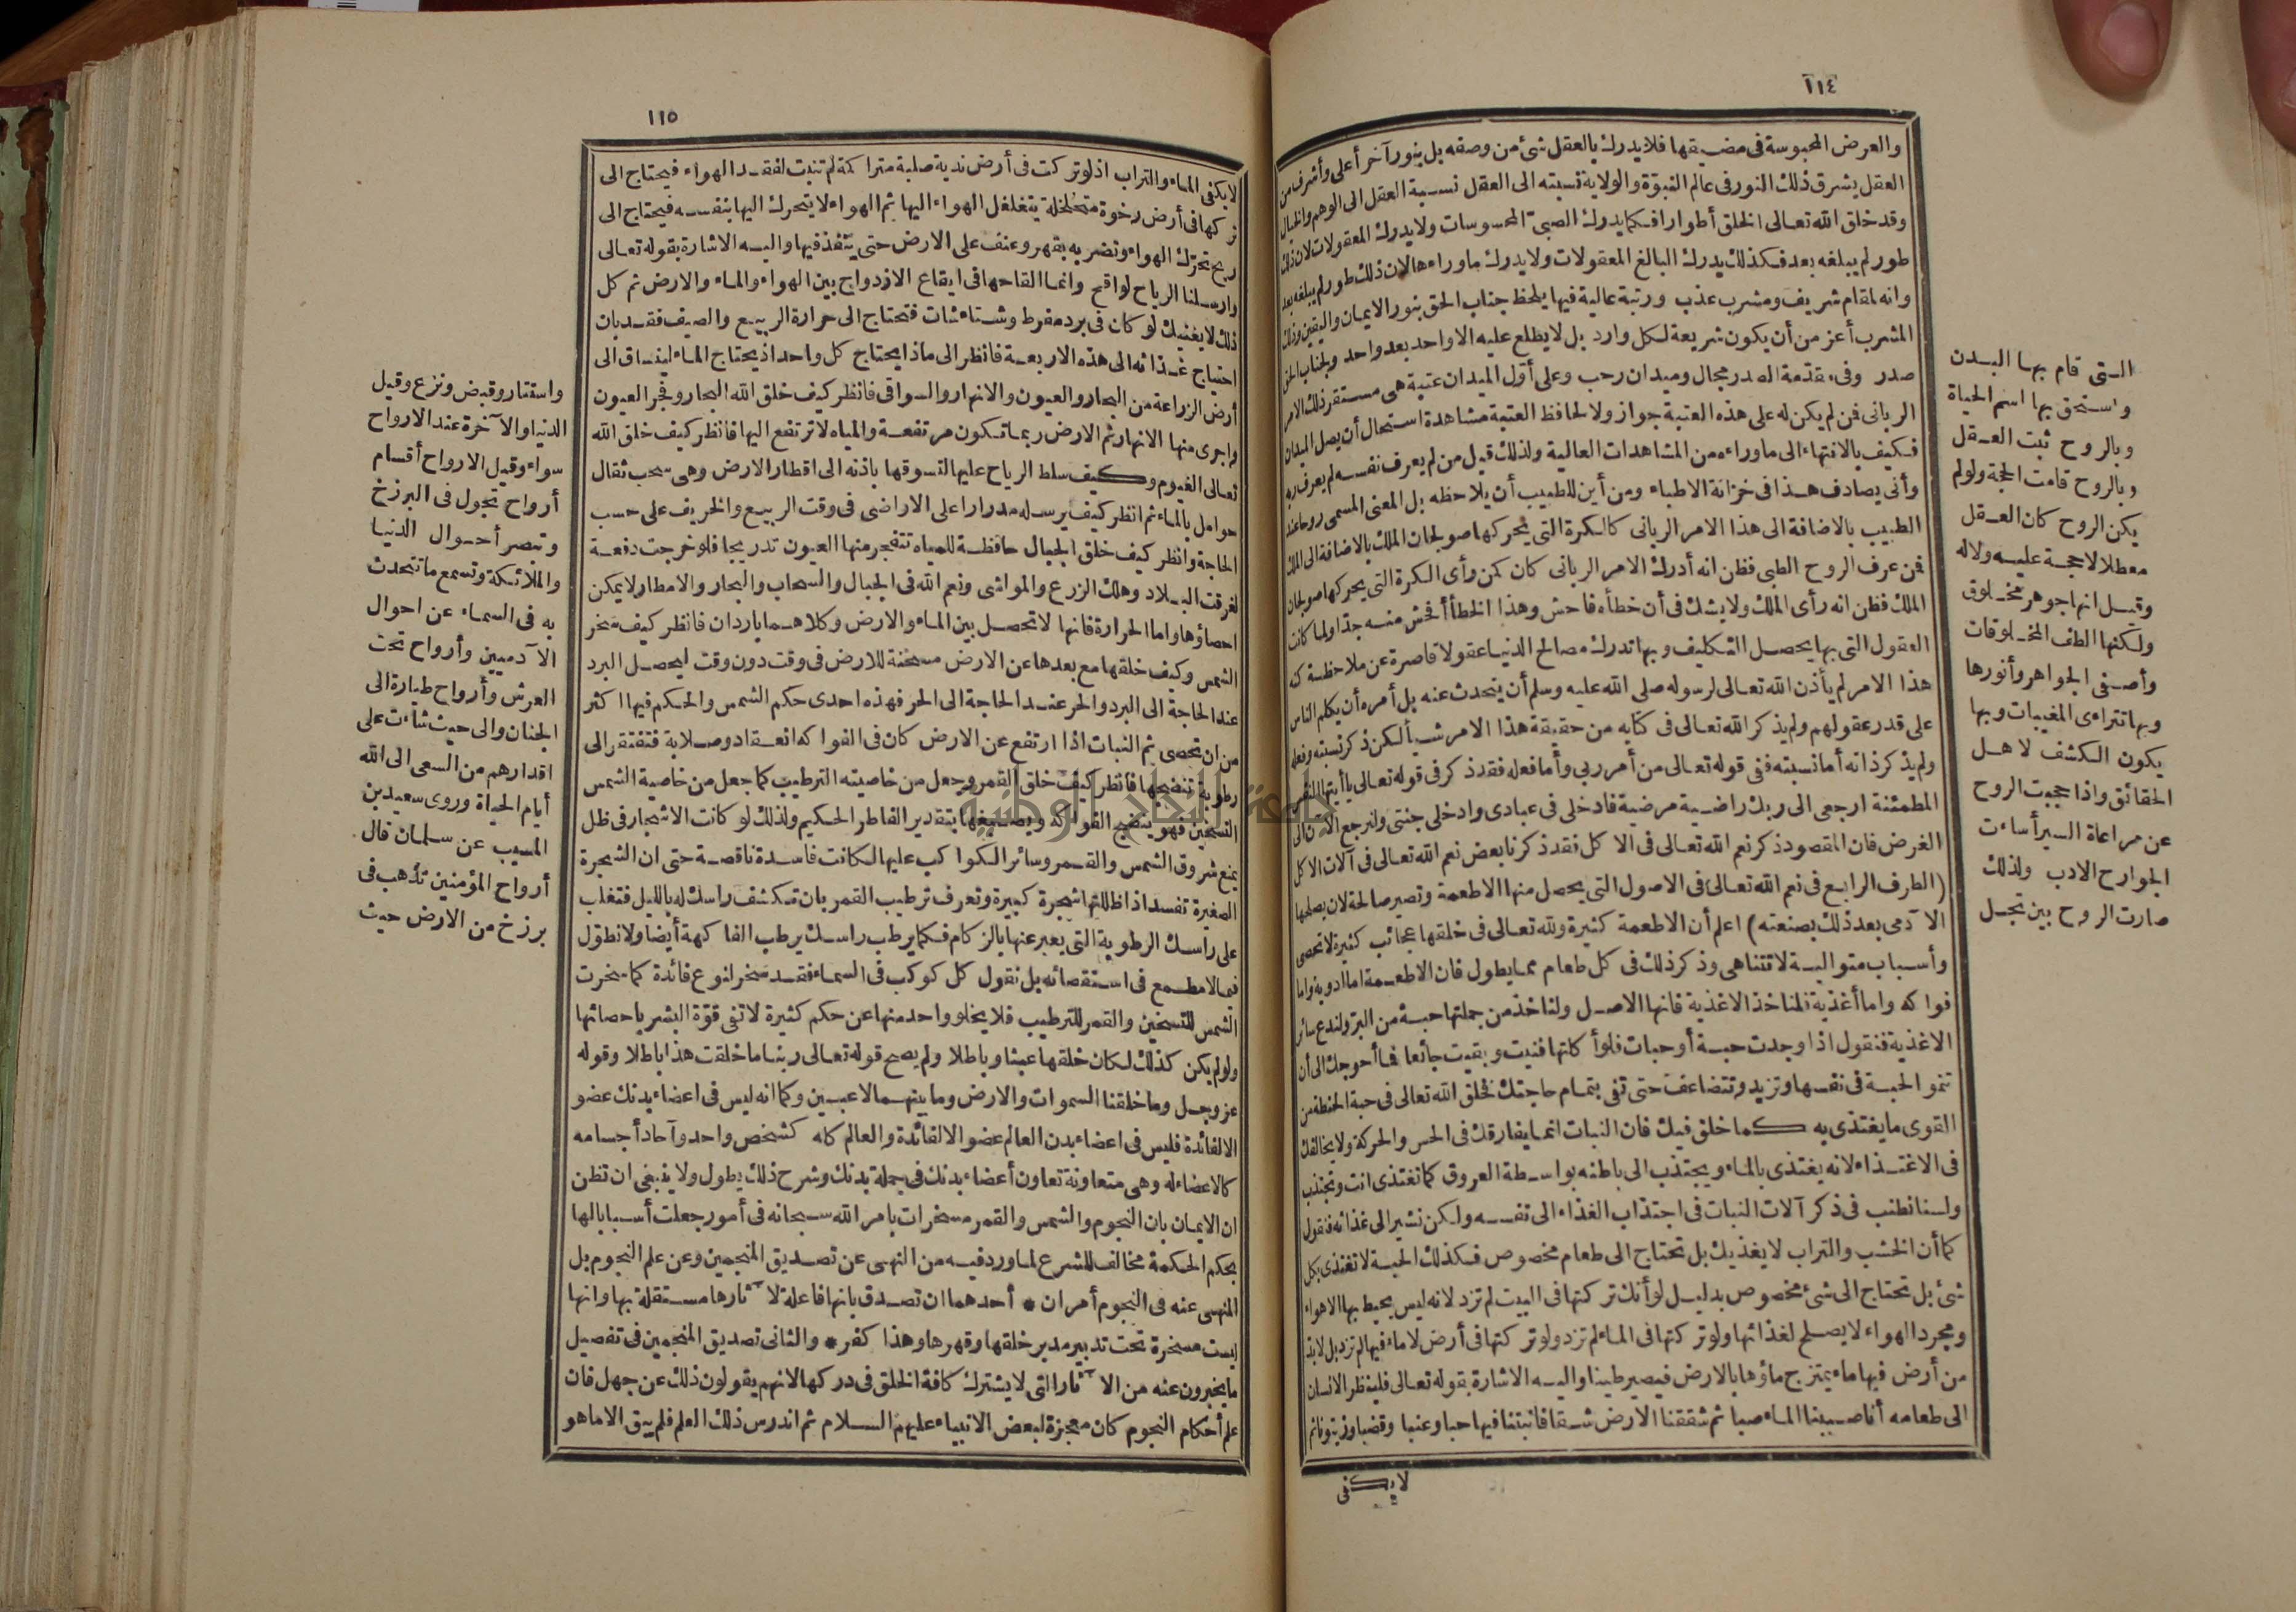 ١١٤
والعرض المحبوسة فى مضيقها فلا يدرك بالعقل شئ من وصفه بل بنور آخر أعلى وأشرف من
العقل يشرق ذلك النور فى عالم النبوّة والولاية نسبته الى العقل نسبة العقل الى الوهم والخيال
وقد خلق الله تعالى الخلق أطوارا فكما يدرك الصبىّ المحسوسات ولا يدرك المعقولات لان ذلك
طور لم يبلغه بعد فكذلك يدرك البالغ المعقولات ولا يدرك ما وراءها لان ذلك طور لم يبلغه بعد
وانه لمقام شريف ومشرب عذب ورتبة عالية فيها يلحظ جناب الحق بنور الايمان واليقين وذلك
المشرب أعز من أن يكون شريعة لكل وارد بل لا يطلع عليه الا واحد بعد واحد ولجناب الحق
صدر وفى مقدّمة الصدر مجال وميدان رحب وعلى أوّل الميدان عتبة هى مستقر ذلك الامر
الربانى فمن لم يكن له على هذه العتبة جواز ولا لحافظ العتبة مشاهدة استحال أن يصل الميدان
فكيف بالانتهاء الى ما وراءه من المشاهدات العالية ولذلك قيل من لم يعرف نفسه لم يعرف ربه
وأنى يصادف هذا فى خزانة الاطباء ومن أين للطبيب أن يلاحظه بل المعنى المسمى روحا عند
الطبيب بالاضافة الى هذا الامر الربانى كالكرة التى يحركها صولجان الملك بالاضافة الى الملك
فمن عرف الروح الطبى فظن انه أدرك الامر الربانى كان كمن رأى الكرة التى يحركها صولجان
الملك فظن انه رأى الملك ولا يشك فى أن خطأه فاحش وهذا الخطأ أفحش منه جدا ولما كانت
العقول التى بها يحصل التكليف وبها تدرك مصالح الدنيا عقولا قاصرة عن ملاحظة كنه
هذا الامر لم يأذن الله تعالى لرسوله صلى الله عليه وسلم أن يتحدث عنه بل أمره أن يكلم الناس
على قدر عقولهم ولم يذكر الله تعالى فى كتابه من حقيقة هذا الامر شيأ لكن ذكر نسبته وفعله
ولم يذكر ذاته أما نسبته ففى قوله تعالى من أمر ربى وأما فعله فقد ذكر فى قوله تعالى يا أيتها النفس
المطمئنة ارجعى الى ربك راضية مرضية فادخلى فى عبادى وادخلى جنتى ولنرجع الآن الى
الغرض فان المقصود ذكر نعم الله تعالى فى الاكل فقد ذكرنا بعض نعم الله تعالى فى آلات الاكل
(الطرف الرابع فى نعم الله تعالى فى الاصول التى يحصل منها الاطعمة وتصير صالحة لان يصلحها
الآدمى بعد ذلك بصنعته) اعلم أن الاطعمة كثيرة ولله تعالى فى خلقها عجائب كثيرة لا تحصى
وأسباب متوالية لا تتناهى وذكر ذلك فى كل طعام مما يطول فان الاطعمة اما ادوية واما
فواكه واما أغذية فلنأخذ الاغذية فانها الاصل ولنأخذ من جملتها حبة من البر ولندع سائر
الاغذية فنقول اذا وجدت حبة أو حبات فلو أكلتها فنيت وبقيت جائعا فما أحوجك الى أن
تنمو الحبة فى نفسها وتزيد وتتضاعف حتى تفى بتمام حاجتك فخلق الله تعالى فى حبة الحنطة من
القوى ما يغتذى به كما خلق فيك فان النبات انما يفارقك فى الحس والحركة ولا يخالفك
فى الاغتذاء لانه يغتذى بالماء ويجتذب الى باطنه بواسطة العروق كما تغتذى انت وتجتذب
ولسنا نطنب فى ذكر آلات النبات فى اجتذاب الغذاء الى نفسه ولكن نشير الى غذائه فنقول
كما أن الخشب والتراب لا يغذيك بل تحتاج الى طعام مخصوص فكذلك الحبة لا تغتذى بكل
شئ بل تحتاج الى شئ مخصوص بدليل لو أنك تركتها فى البيت لم تزد لانه ليس يحيط بها الا هواء
ومجرد الهواء لا يصلح لغذائها ولو تركتها فى الماء لم تزد ولو تركتها فى أرض لا ماء فيها لم تزد بل لا بد
من أرض فيها ماء يمتزج ماؤها بالارض فيصير طينا واليه الاشارة بقوله تعالى فلينظر الانسان
الى طعامه أنا صببنا الماء صبا ثم شققنا الارض شقا فانبتنا فيها حبا وعنبا وقضبا وزيتونا ثم
لا يكفى
التى قام بها البدن
واستحق بها اسم الحياة
وبالروح ثبت العقل
وبالروح قامت الحجة ولو لم
يكن الروح كان العقل
معطلا لا حجة عليه ولا له
وقيل انها جوهر مخلوق
ولكنها الطف المخلوقات
وأصفى الجواهر وأنورها
وبها تتراءى المغيبات وبها
يكون الكشف لاهل
الحقائق واذا حجبت الروح
عن مراعاة السير أساءت
الجوارح الادب ولذلك
صارت الروح بين تجل
١١٥
لا يكفى الماء والتراب اذ لو تركت فى أرض ندية صلبة متراكمة لم تنبت لفقد الهواء فيحتاج الى
تركها فى أرض رخوة متخلخلة يتغلغل الهواء اليها ثم الهواء لا يتحرك اليها بنفسه فيحتاج الى
ريح تحرّك الهواء وتضربه بقهر وعنف على الارض حتى ينفذ فيها واليه الاشارة بقوله تعالى
وارسلنا الرياح لواقح وانما القاحها فى ايقاع الازدواج بين الهواء والماء والارض ثم كل
ذلك لا يغنيك لو كان فى برد مفرط وشتاء شات فتحتاج الى حرارة الربيع والصيف فقد بان
احتياج غذائه الى هذه الاربعة فانظر الى ماذا يحتاج كل واحد اذ يحتاج الماء لينساق الى
أرض الزراعة من البحار والعيون والانهار والسواقى فانظر كيف خلق الله البحار وفجر العيون
واجرى منها الانهار ثم الارض ربما تكون مرتفعة والمياه لا ترتفع اليها فانظر كيف خلق الله
تعالى الغيوم وكيف سلط الرياح عليها لتسوقها باذنه الى اقطار الارض وهى سحب ثقال
حوامل بالماء ثم انظر كيف يرسله مدرارا على الاراضى فى وقت الربيع والخريف على حسب
الحاجة وانظر كيف خلق الجبال حافظة للمياه تتفجر منها العيون تدريجا فلو خرجت دفعة
لغرقت البلاد وهلك الزرع والمواشى ونعم الله فى الجبال والسحاب والبحار والامطار لا يمكن
احصاؤها واما الحرارة فانها لا تحصل بين الماء والارض وكلاهما باردان فانظر كيف سخر
الشمس وكيف خلقها مع بعدها عن الارض مسخنة للارض فى وقت دون وقت ليحصل البرد
عند الحاجة الى البرد والحر عند الحاجة الى الحر فهذه احدى حكم الشمس والحكم فيها اكثر
من ان تحصى ثم النبات اذا ارتفع عن الارض كان فى الفواكه انعقاد وصلابة فتفتقر الى
رطوبة تنضجها فانظر كيف خلق القمر وجعل من خاصيته الترطيب كما جعل من خاصية الشمس
التسخين فهو ينضج الفواكه ويصبغها بتقدير الفاطر الحكيم ولذلك لو كانت الاشجار فى ظل
يمنع شروق الشمس والقمر وسائر الكواكب عليها لكانت فاسدة ناقصة حتى ان الشجرة
الصغيرة تفسد اذا ظللتها شجرة كبيرة وتعرف ترطيب القمر بان تكشف راسك له بالليل فتغلب
على راسك الرطوبة التى يعبر عنها بالزكام فكما يرطب راسك يرطب الفاكهة أيضا ولا نطول
فيما لا مطمع فى استقصائه بل نقول كل كوكب فى السماء فقد سخر لنوع فائدة كما سخرت
الشمس للتسخين والقمر للترطيب فلا يخلو واحد منها عن حكم كثيرة لا تفى قوّة البشر باحصائها
ولو لم يكن كذلك لكان خلقها عبثا وباطلا ولم يصح قوله تعالى ربنا ما خلقت هذا باطلا وقوله
عز وجل وما خلقنا السموات والارض وما بينهما لاعبين وكما انه ليس فى اعضاء بدنك عضو
الا لفائدة فليس فى اعضاء بدن العالم عضو الا لفائدة والعالم كله كشخص واحد وآحاد أجسامه
كالاعضاء له وهى متعاونة تعاون أعضاء بدنك فى جملة بدنك وشرح ذلك يطول ولا ينبغى ان تظن
ان الايمان بان النجوم والشمس والقمر مسخرات بامر الله سبحانه فى أمور جعلت أسبابا لها
بحكم الحكمة مخالف للشرع لما ورد فيه من النهى عن تصديق المنجمين وعن علم النجوم بل
المنهى عنه فى النجوم أمران * أحدهما ان تصدق بانها فاعلة لآثارها مستقلة بها وانها
ليست مسخرة تحت تدبير مدبر خلقها وقهرها وهذا كفر * والثانى تصديق المنجمين فى تفصيل
ما يخبرون عنه من الآثار التى لا يشترك كافة الخلق فى دركها لانهم يقولون ذلك عن جهل فان
علم أحكام النجوم كان معجزة لبعض الانبياء عليهم السلام ثم اندرس ذلك العلم فلم يبق الا ما هو
واستتار وقبض ونزع وقيل
الدنيا والآخرة عند الارواح
سواء وقيل الارواح أقسام
أرواح تجول فى البرزخ
وتبصر أحوال الدنيا
والملائكة وتسمع ما تتحدث
به فى السماء عن احوال
الآدميين وأرواح تحت
العرش وأرواح طيارة الى
الجنان والى حيث شاءت على
اقدارهم من السعى الى الله
أيام الحياة وروى سعيد بن
المسيب عن سلمان قال
أرواح المؤمنين تذهب فى
برزخ من الارض حيث
جامعة النجاح الوطنية